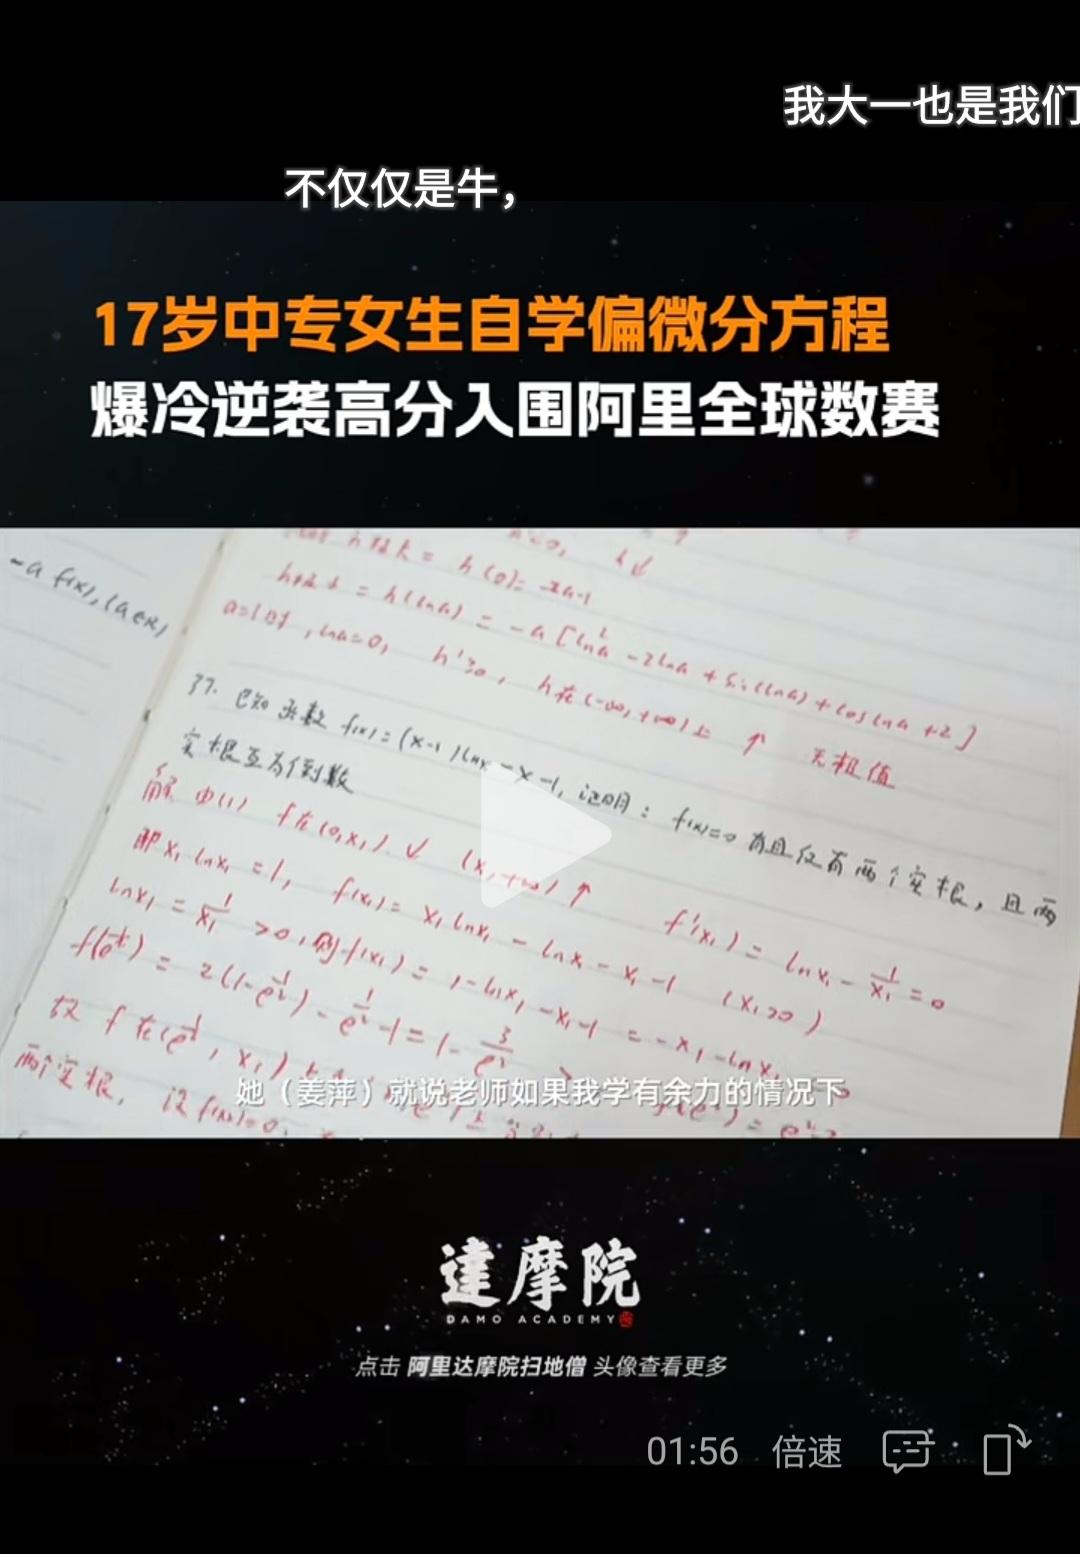 我大一也是我们
不仅仅是牛，
17岁中专女生自学偏微分方程
爆冷逆袭高分入围阿里全球数赛
-a f(x), (a∈R)
h极大 = h(0) = -2a-1
h极小 = h(lna) = -a[ln²a - 2lna + sin(lna) + coslna + 2]
a=1时, lna=0, h'≥0, h在(-∞,+∞)上 ↑ 无极值
37. 已知函数 f(x)=(x-1)lnx-x-1, 证明: f(x)=0 有且仅有两个实根, 且两
实根互为倒数
解 由(1) f在(0,x₁)↓ (x₁,+∞)↑ f'(x₁) = lnx₁ - 1/x₁ = 0
即 x₁lnx₁ = 1, f(x₁) = x₁lnx₁ - lnx₁ - x₁ - 1 (x₁>0)
lnx₁ = 1/x₁ >0, 则 f(x₁) = 1-lnx₁-x₁-1 = -x₁-lnx₁
= 2(1-1/e²) - 1/e² - 1 = 1 - 3/e² >
故 f 在(
两个实根, 设 f(x₁)=0,
她（姜萍）就说老师如果我学有余力的情况下
達摩院
DAMO ACADEMY
点击 阿里达摩院扫地僧 头像查看更多
01:56 倍速